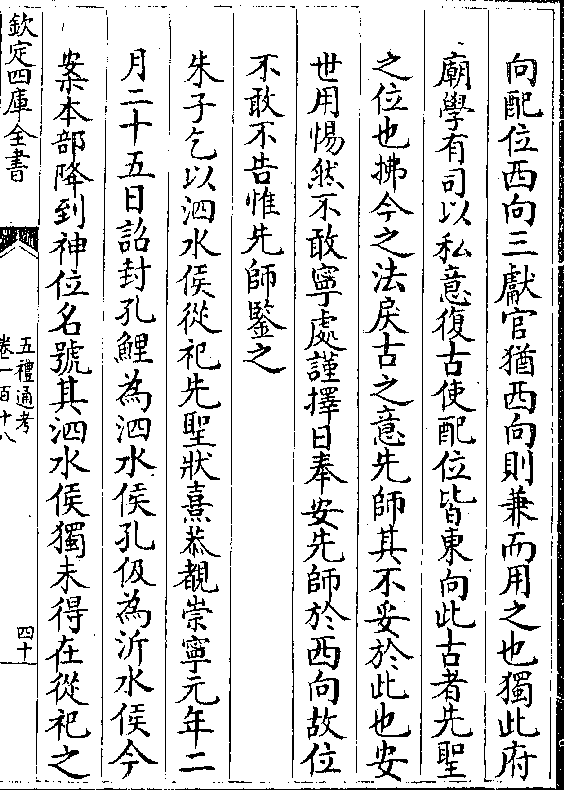 向配位西向三獻官猶西向則兼而用之也獨此府
廟學有司以私意復古使配位皆東向此古者先聖
之位也拂今之法戾古之意先師其不妥於此也安
世用惕然不敢寧處謹擇日奉安先師於西向故位
不敢不告惟先師鑒之
朱子乞以泗水侯從祀先聖狀熹恭覩崇寧元年二
月二十五日詔封孔鯉為泗水侯孔伋為沂水侯今
案本部降到神位名號其泗水侯獨未得在從祀之
欽定四庫全書
五禮通考
卷一百十八
四十